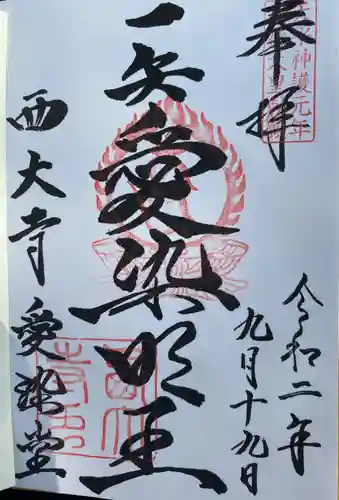 奉拝
神護元年
令和二年
九月十九日
一矢愛染明王
西大寺 愛染堂